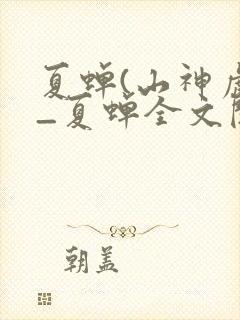 夏蝉(山神
_夏蝉全文
朝盖